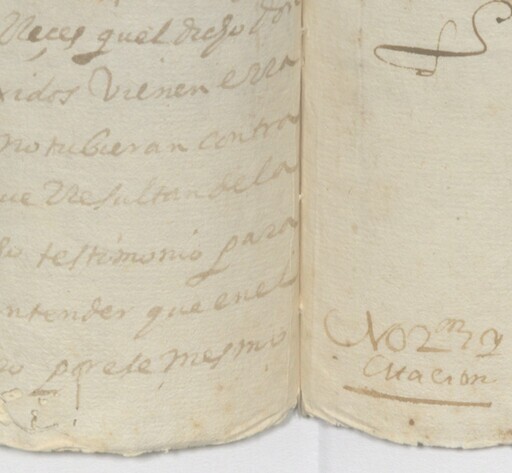 veçes quel dicho don
xidos vienen e rra
no tubieran contra
que Resultan de la
ho testimonio para
ntender que en el
no por ese mesmo
citacion